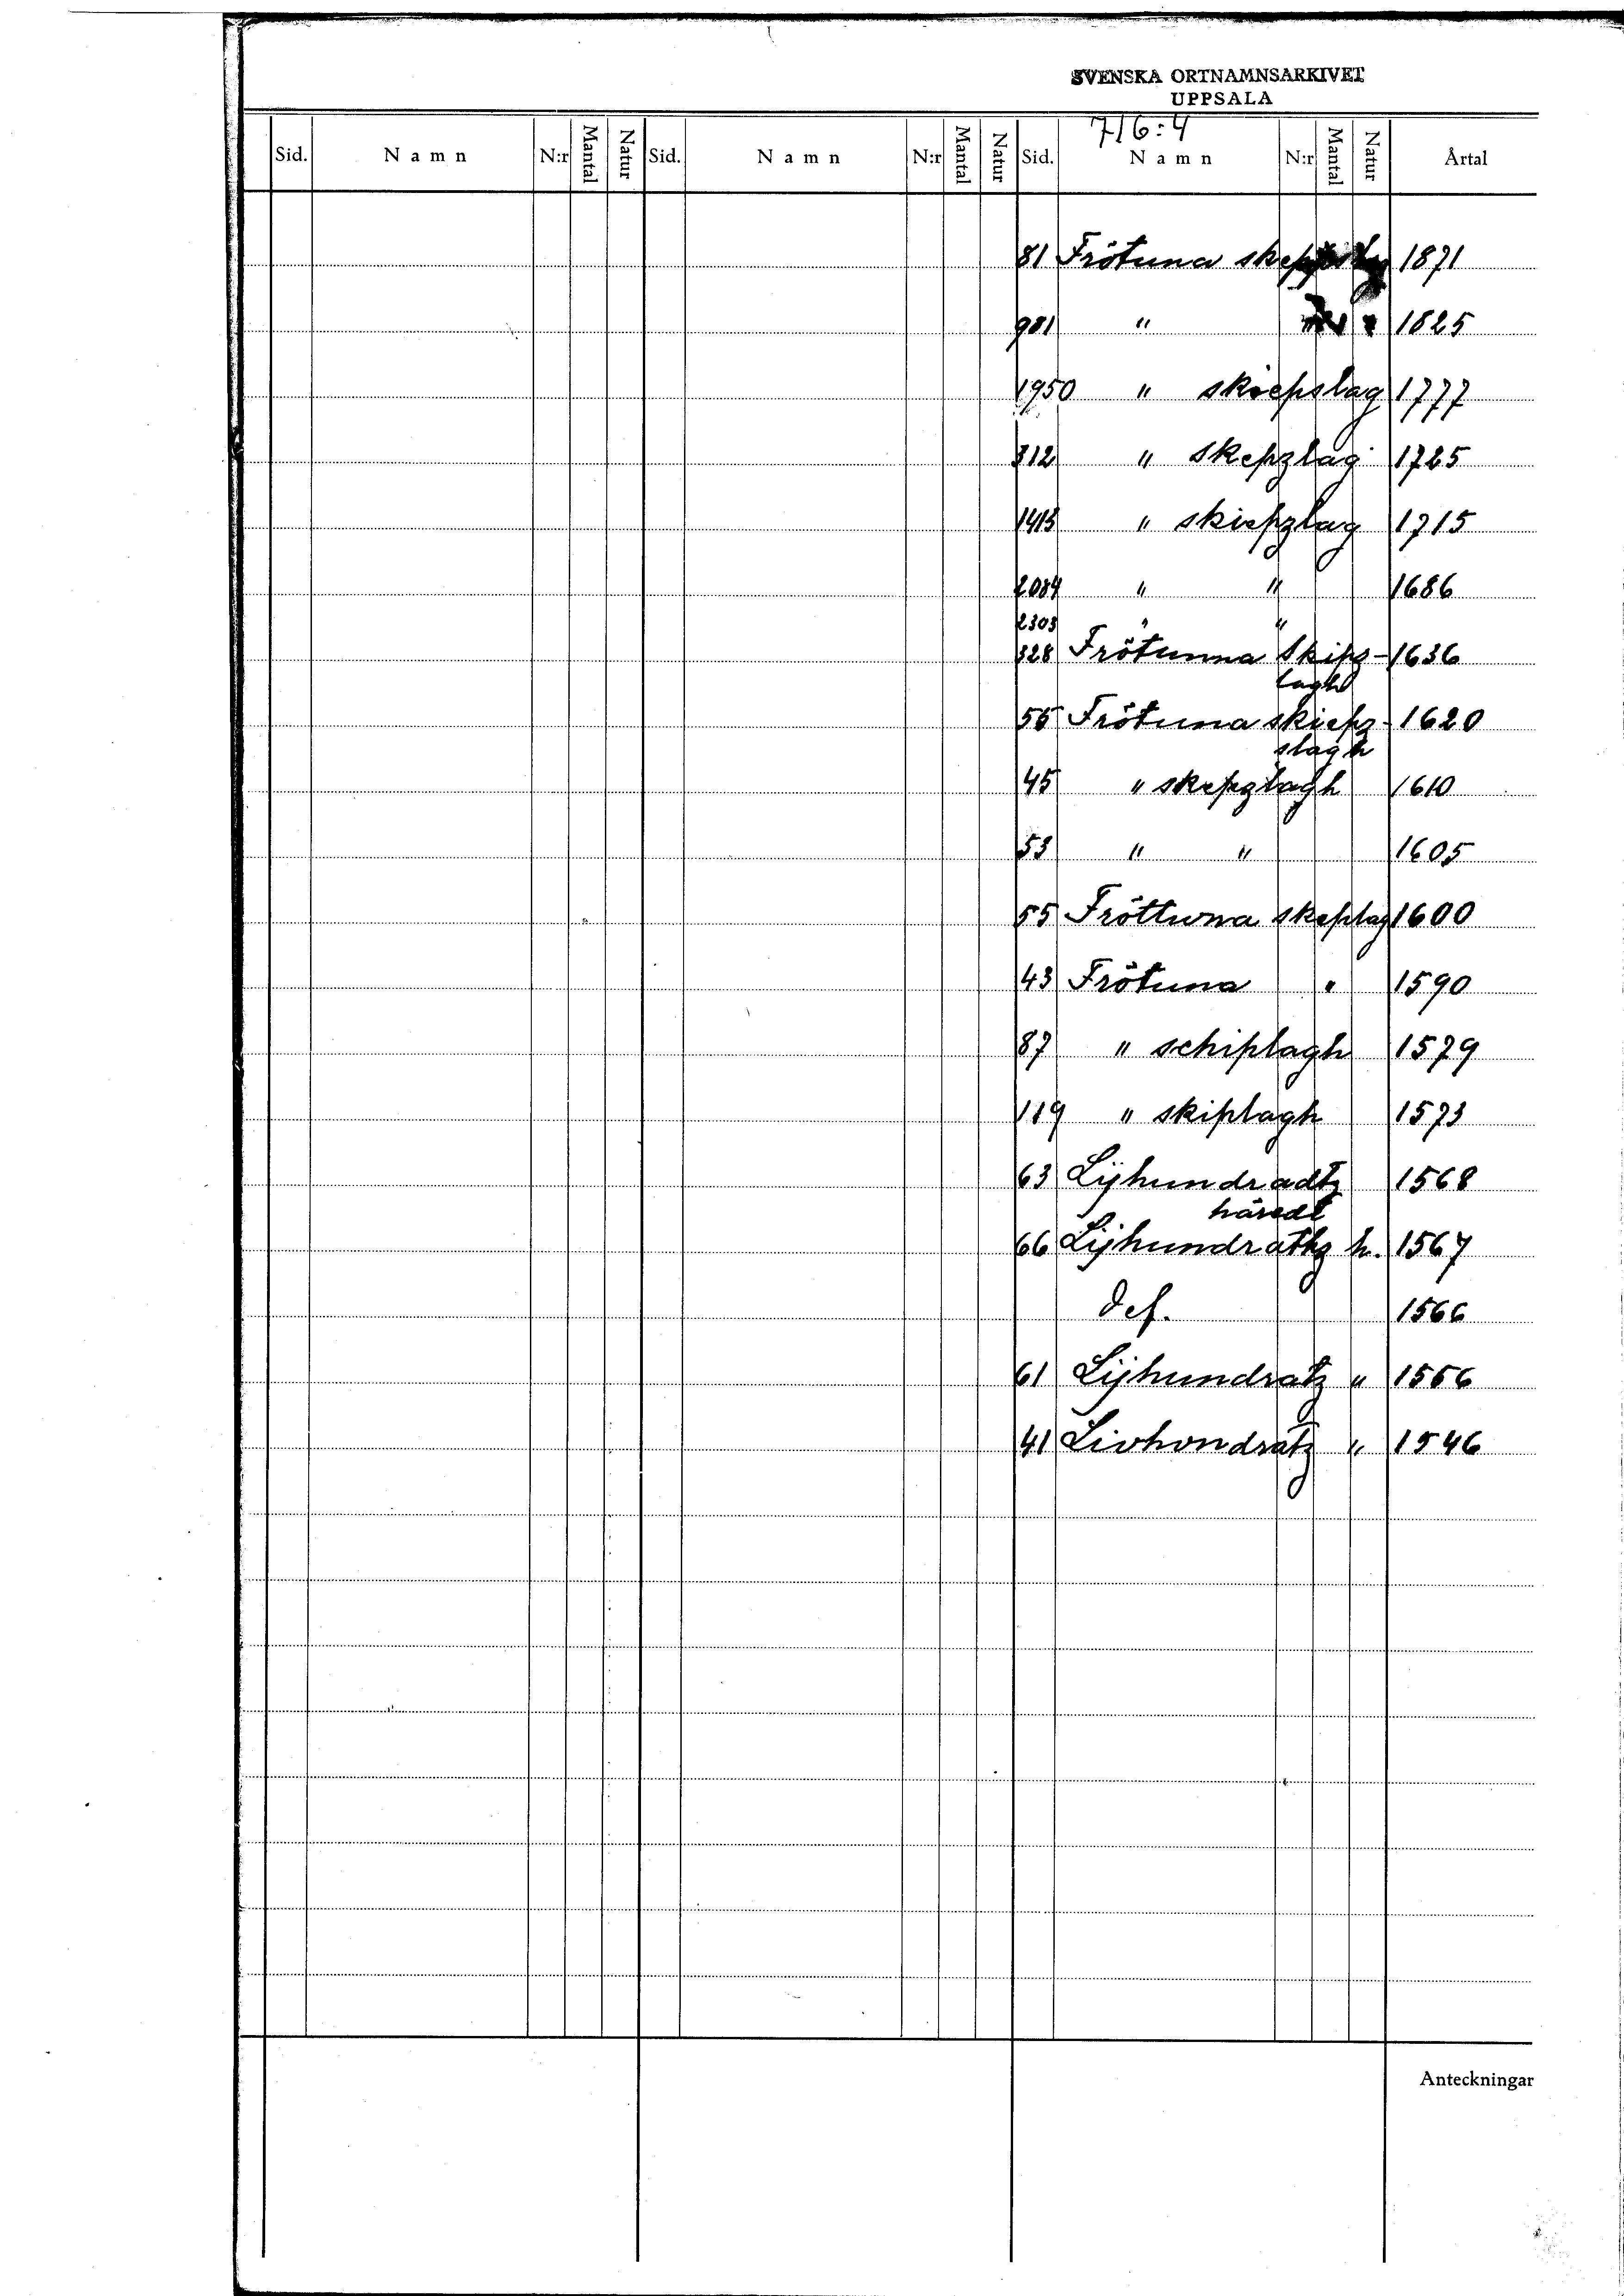 SVENSKA ORTNAMNSARKIVET
UPPSALA
716:4
Sid. Namn N:r Mantal Natur Sid. Namn N:r Mantal Natur Sid. Namn N:r Mantal Natur Årtal
81 Frötuna 1871
981 " 1825
1950 " skiepslag 1777
312 " skepzlag 1725
1413 " skiepzlag 1715
2084 " " 1686
2303 " "
328 Frötunna Skipz- 1636
lagh
55 Frötuna skiepz- 1620
slagh
45 " skepzlagh 1610
53 " " 1605
55 Fröttuna skeplag 1600
43 Frötuna " 1590
87 " schiplagh 1579
119 " skiplagh 1573
63 Lijhundradtz 1568
häredt
66 Lijhundrathz h. 1567
def. 1566
61 Lijhundratz " 1556
41 Livhondratz " 1546
Anteckningar